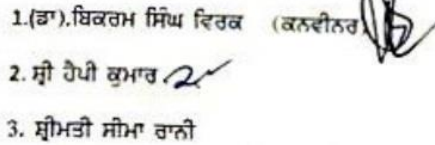 1.(ਡਾ).ਬਿਕਰਮ ਸਿੰਘ ਵਿਰਕ (ਕਨਵੀਨਰ)
2. ਸ਼੍ਰੀ ਹੈਪੀ ਕੁਮਾਰ
3. ਸ਼੍ਰੀਮਤੀ ਸੀਮਾ ਰਾਨੀ